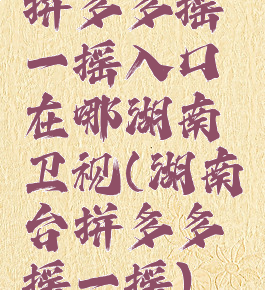 拼多多摇
一摇入口
在哪湖南
卫视(湖南
台拼多多
摇一摇)